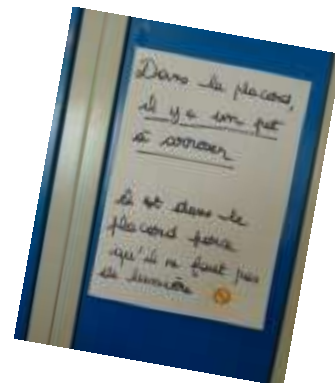 Dans le placard,
il y a un pot
à arroser
il est dans le
placard parce
qu'il ne faut pas
de lumière